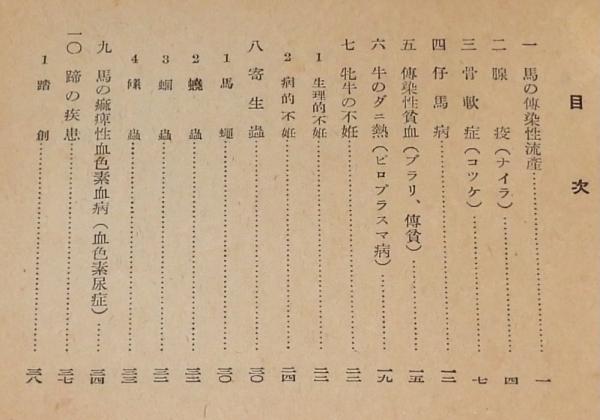 目次
一 馬の傳染性流産…………一
二 腺疫(ナイラ)…………四
三 骨軟症(コツケ)…………七
四 仔馬病…………一二
五 傳染性貧血(ブラリ、傳貧)…………一五
六 牛のダニ熱(ピロプラスマ病)…………一九
七 牝牛の不妊…………二二
1 生理的不妊…………二二
2 病的不妊…………二四
八 寄生蟲…………三〇
1 馬蠅…………三〇
2 蟯蟲…………三二
3 蛔蟲…………三二
4 條蟲…………三三
九 馬の痲痺性血色素血病(血色素尿症)……三四
一〇 蹄の疾患…………三七
1 踏創…………三八